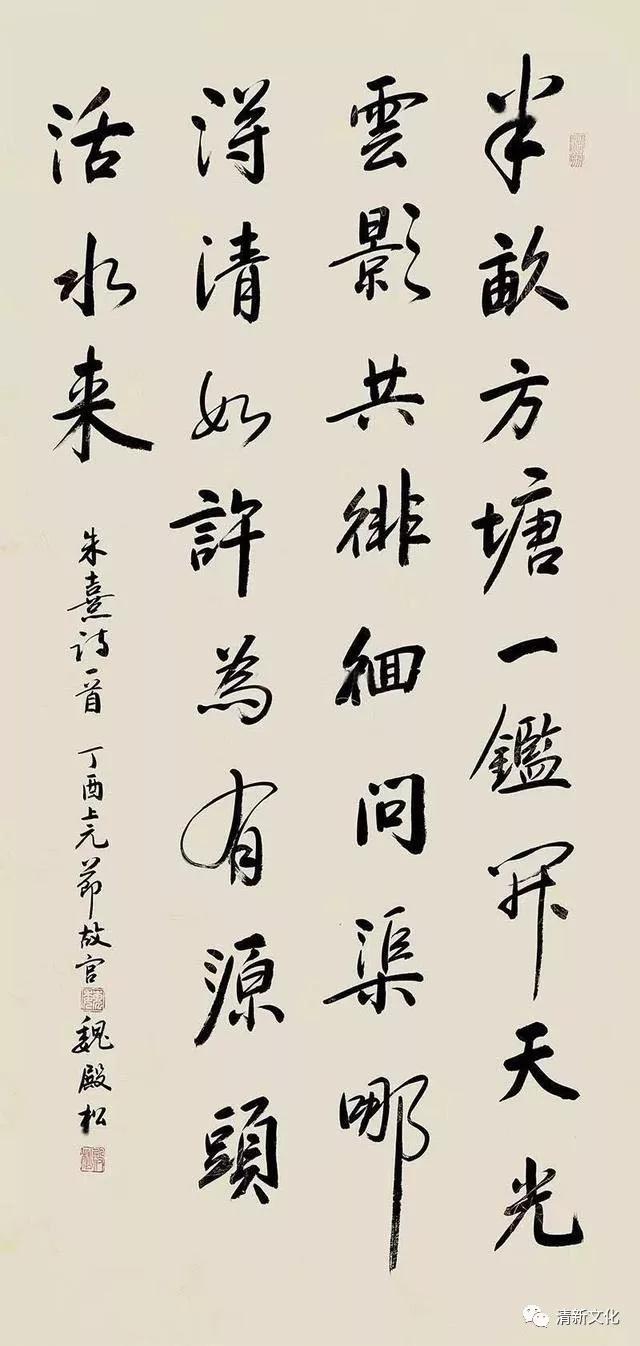 半畝方塘一鑑開天光
雲影共徘徊问渠哪
得清如許為有源頭
活水来
朱熹诗一首 丁酉上元節故宫魏殿松
清新文化